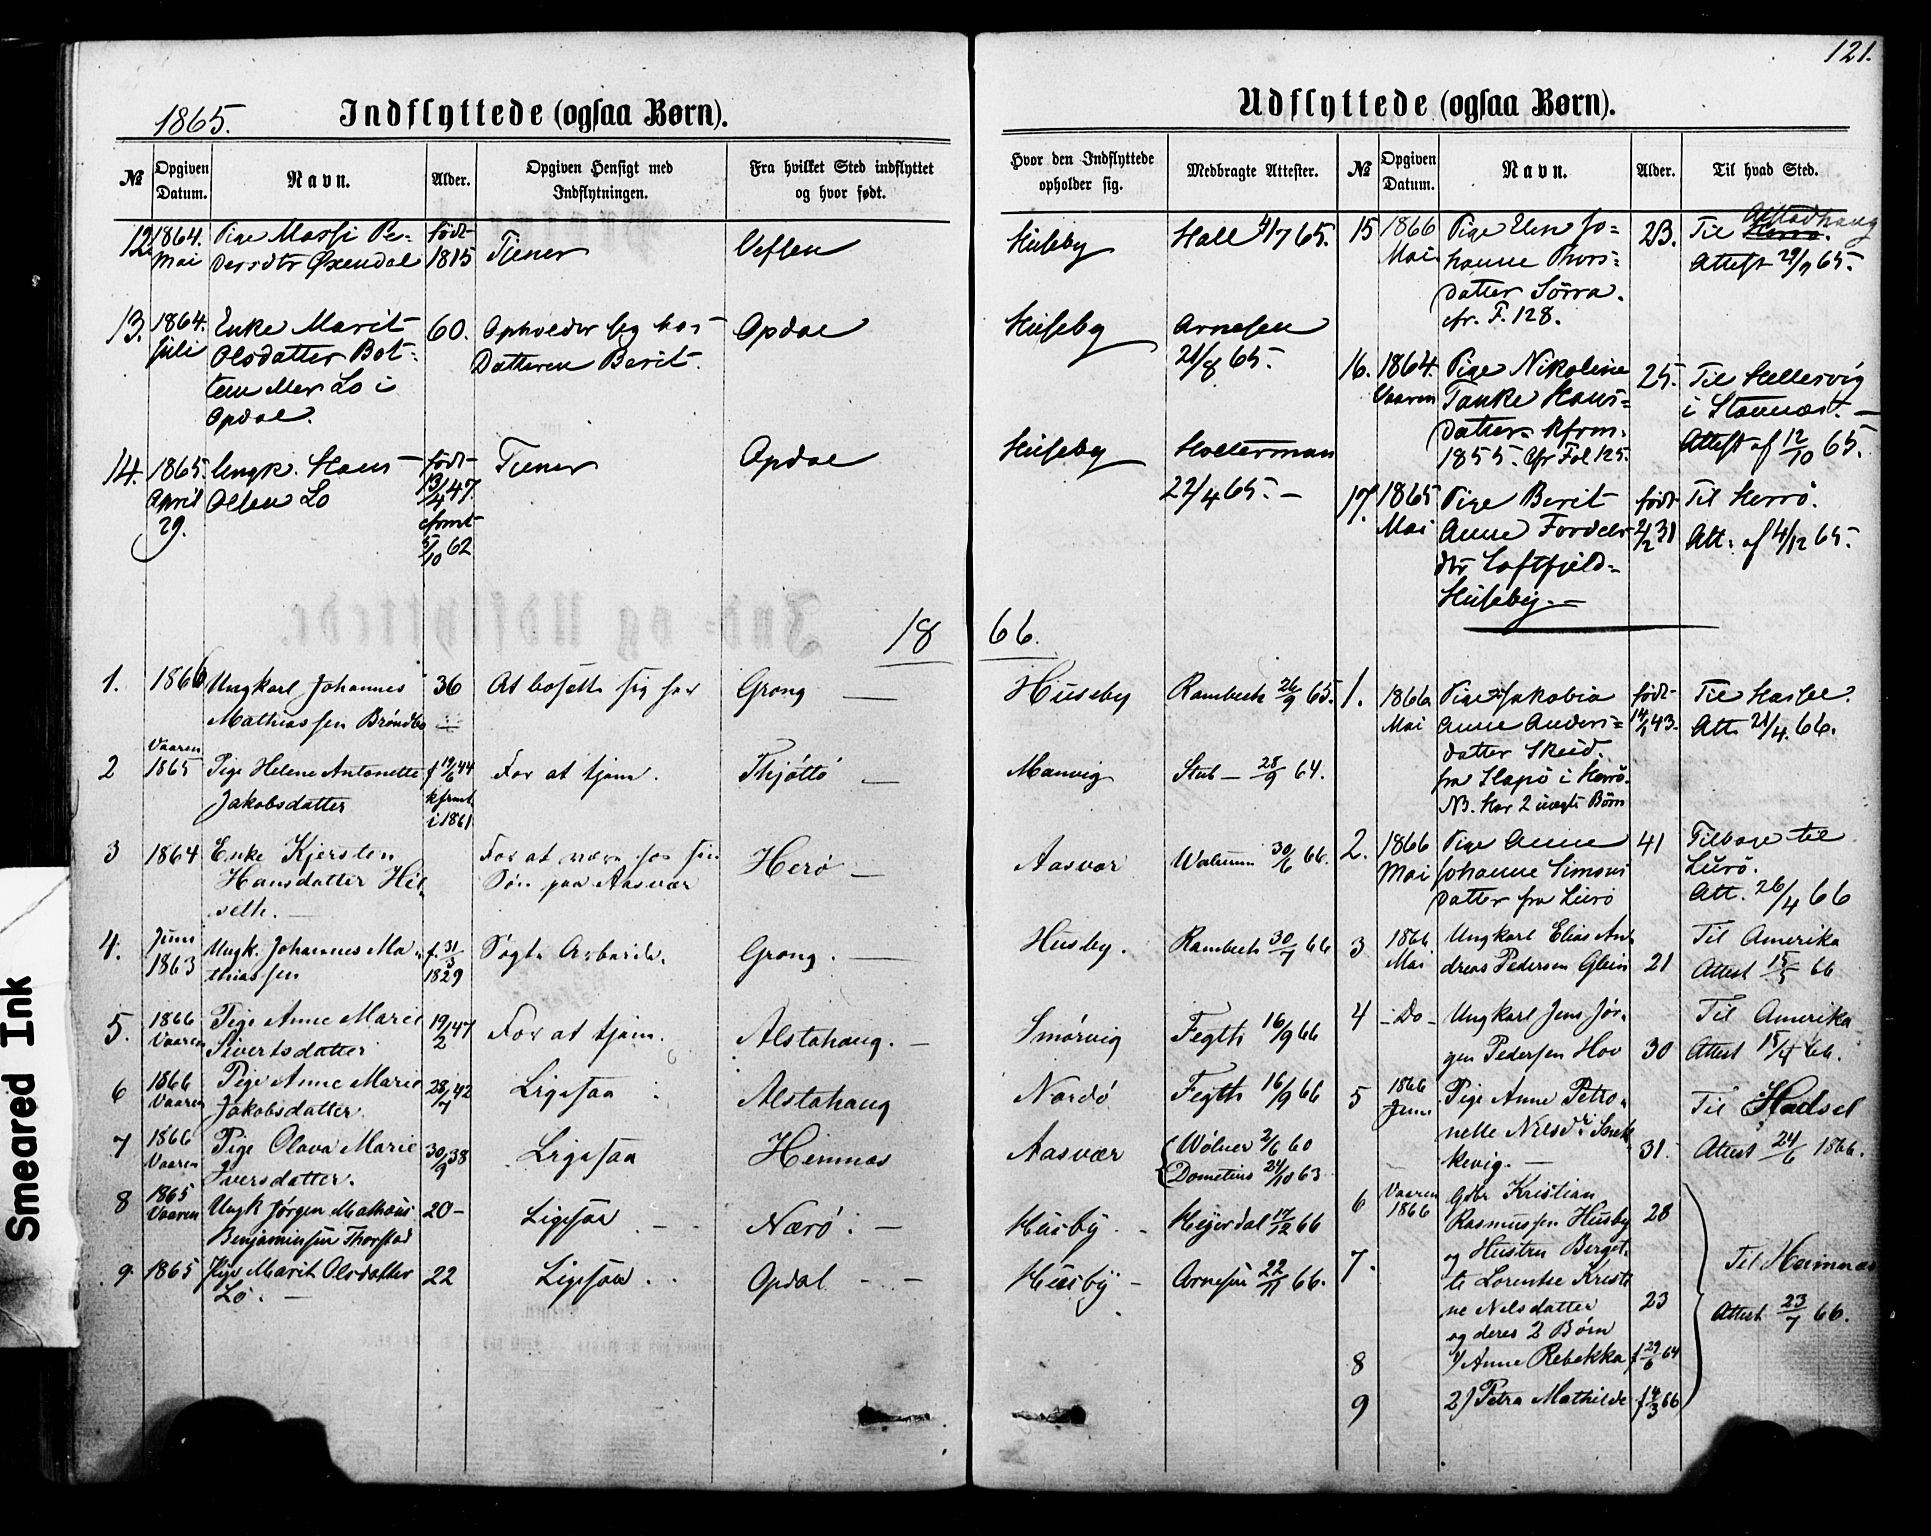 121.
1865. Indflyttede (ogsaa Børn).
Udflyttede (ogsaa Børn).
№ Opgiven Datum. Navn. Alder. Opgiven Hensigt med Indflytningen. Fra hvilket Sted indflyttet og hvor født.
Hvor den Indflyttede opholder sig. Medbragte Attester. № Opgiven Datum. Navn. Alder. Til hvad Sted.
12. 1864. Pige Massi Pe- født Tjener Vefsen
Mai dersdtr Øxendal 1815
13. 1864. Enke Marit 60. Opholder sig hos Opdal
Juli Olsdatter Bot- Datteren Berit.
tem Mer Lo i
Opdal.
14. 1865. Ungk. Hans født Tjener Opdal
April Olsen Lo 13/4 47.
29. cfrmt
5/10 62
Huseby Hall 4/7 65.
Huseby Arnesen
21/8 65.
Huseby Hollerman
22/4 65. —
15 1866 Pige Elen Jo- 23. Til Herrø. Alstadhaug
Mai hanne Thors- Attest 29/9 65.
datter Sörra.
cfr. F. 128.
16. 1864. Pige Nikoline 25. Til Hellesvig
Vaaren Tanke Hans- i Stamnæs. —
datter kfrm. Attest af 12/10 65.
1855. cfr Fol 125.
17. 1865 Pige Berit født Til Herrö.
Mai Anne Fordels- 2/2 31 Att. af 4/12 65.
dtr Loftfjeld-
Huseby. —
18 66.
1. 1866 Ungkarl Johannes 36 At bosætte sig her Grong —
Mathiassen Brøndbo
Vaaren
2 1865 Pige Helene Antonette f 19/6 44 For at tjene. Thjöttö —
Jakobsdatter kfrmt.
i 1861
3 1864 Enke Kjersten For at være hos sin Herö —
Hansdatter Hil- Søn paa Aasvær
seth. —
4. Juni Ungk. Johannes Ma- f. 31/3 Søgte Arbeide. Grong. —
1863 thiassen 1829
5. 1866 Pige Anne Marie 19/2 47 For at tjene. Alstahaug. —
Vaaren Sivertsdatter
6 1866 Pige Anne Marie 28/7 42 Ligesaa Alstahaug
Vaaren Jakobsdatter.
7 1866 Pige Olava Marie 30/9 38 Ligesaa Hemnæs
Vaaren Iversdatter.
8 1865 Ungk Jørgen Mathæus 20 – Ligesaa Nærö. —
Vaaren Benjaminsen Thorstad
9. 1865 Pige Marit Olsdatter 22 Ligesaa Opdal - -
Lo. —
Huseby Rambech 26/9 65.
Manvig Stub – 28/9 64.
Aasvær 30/6 66.
Husby. Rambech 30/7 66
Smørvig Fegth 16/9 66
Nordö Fegth 16/9 66
Aasvær Wølner 2/6 60
Dometius 24/10 63
Husby. Heyerdal 17/12 66
Husby – Arnesen 22/11 66.
1. 1866 Pige Jakobia født Til Hassel.
Mai Anne Anders- 14/1 43. Att. 21/4. 66.
datter Skeid.
fra Slapö i Herrö.
NB. Har 2 uægte Børn
2. 1866 Pige Anne 41 Tilbage til
Mai Johanne Simons Lurö.
datter fra Lurö Att. 26/4 66
3 1866 Ungkarl Elias An- Til Amerika
Mai dreas Pedersen Glein 21 Attest 15/5 66
4 – Do – Ungkarl Jens Jør- Til Amerika
gen Pedersen Hov 30 Attest 15/4 66.
5 1866 Pige Anne Petro- Til Hadsel
Juni nelle Nilsdr Snek-
kevig. — 31. Attest 24/6 1866.
6 Vaaren Gdbr Kristian
1866 Rasmussen Husby 28
7. og Hustru Berget-
te Lorentse Kristi- Til Hemnæs
ne Nilsdatter 23
og deres 2 Børn Attest 23/7 66.
8 1) Anne Rebekka f 29/6 64
9 2) Petra Mathilde f 4/3 66
Smeared Ink